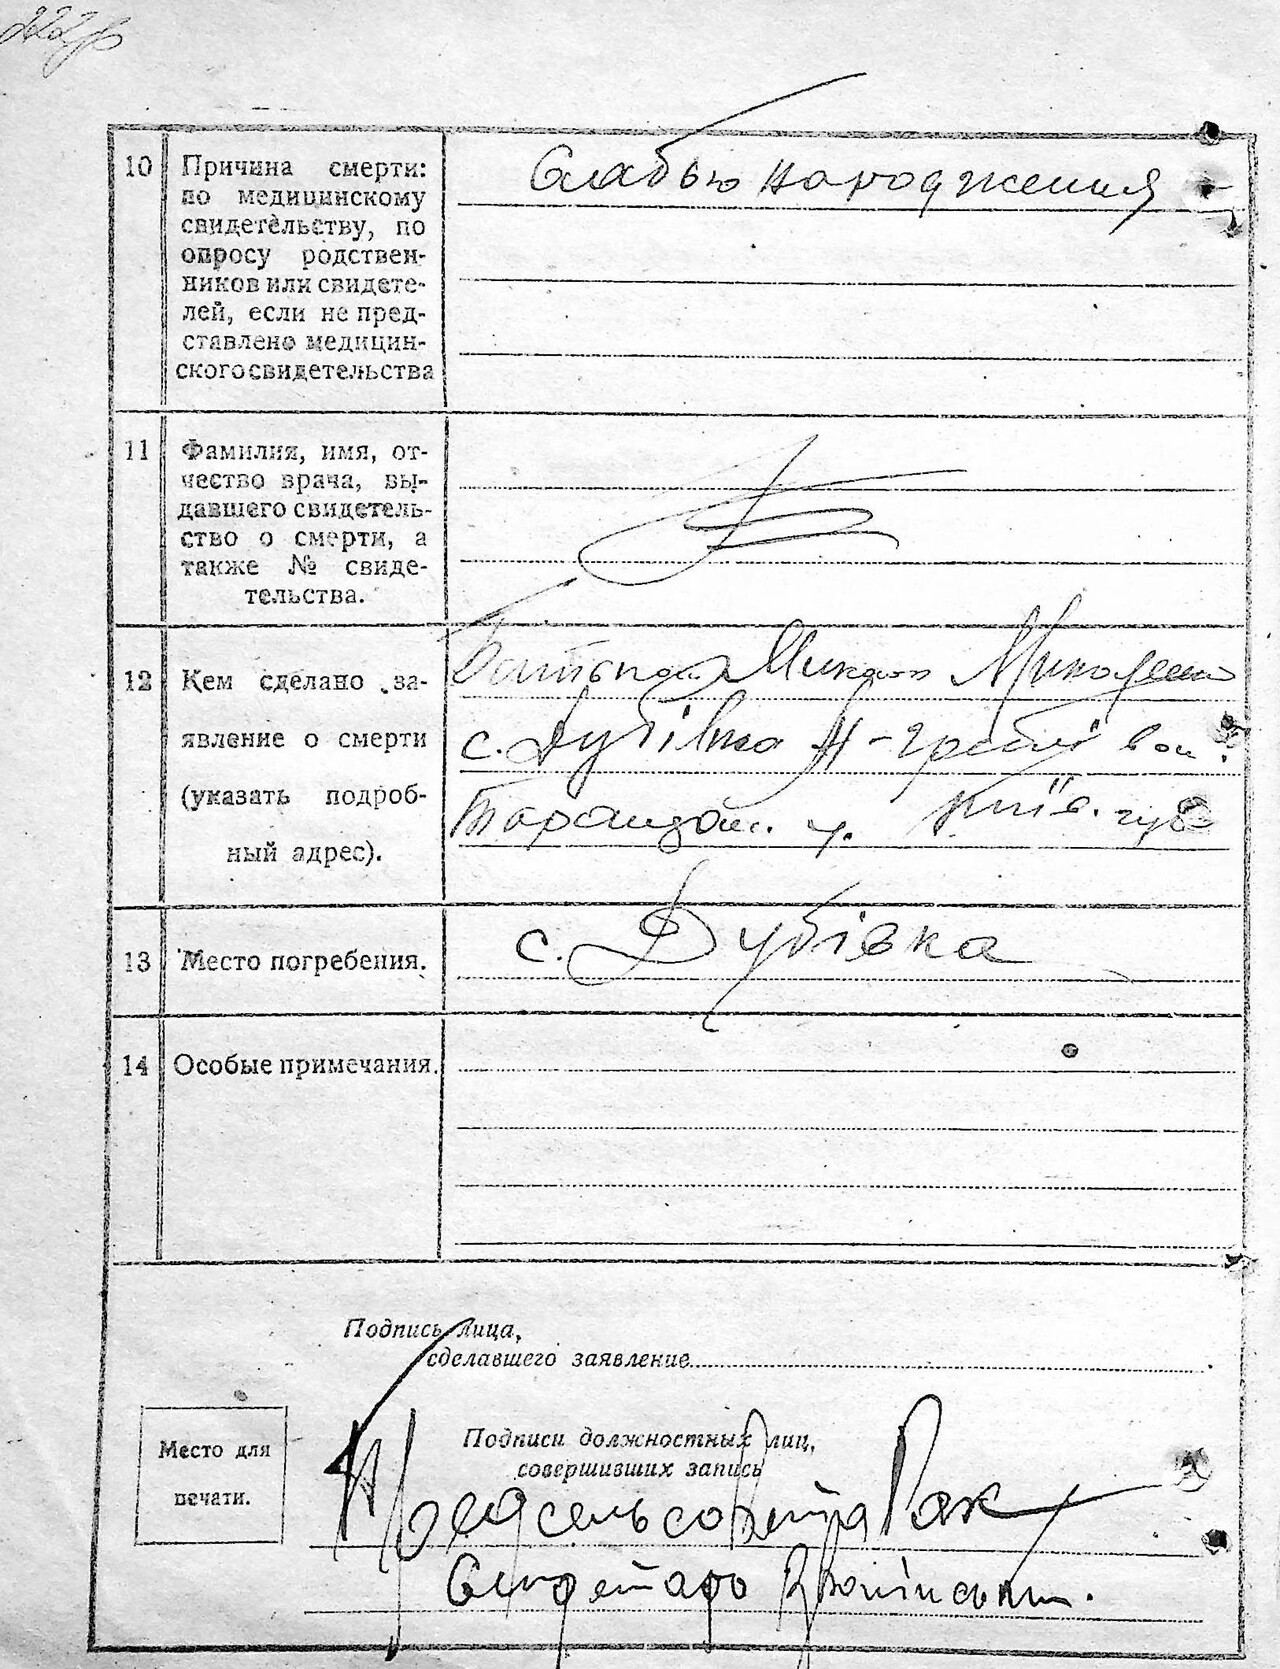 10 Причина смерти:
по медицинскому
свидетельству, по
опросу родствен-
ников или свидете-
лей, если не пред-
ставлено медицин-
ского свидетельства
Слабью народження
11 Фамилия, имя, от-
чество врача, вы-
давшего свидетель-
ство о смерти, а
также № свиде-
тельства.
12 Кем сделано за-
явление о смерти
(указать подроб-
ный адрес).
с. Дубівка Н-гребл вол.
Таращан. у. Київ. губ
13 Место погребения.
с. Дубівка
14 Особые примечания.
Подпись лица,
сделавшего заявление
Место для
печати.
Подписи должностных лиц,
совершивших запись
Предсельсовета Рак
Секретарь